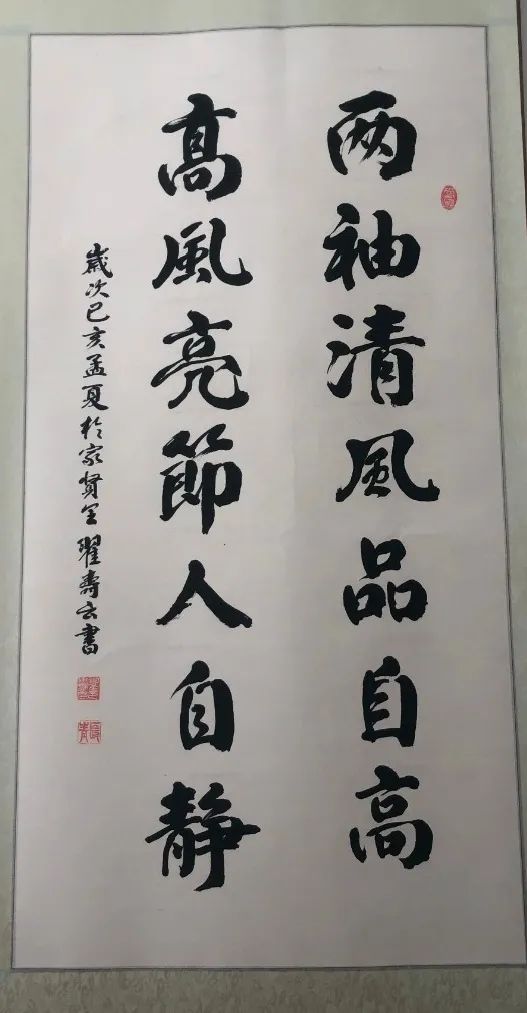 两袖清風品自高
高風亮節人自静
歲次己亥孟夏於家贤里翟壽云書